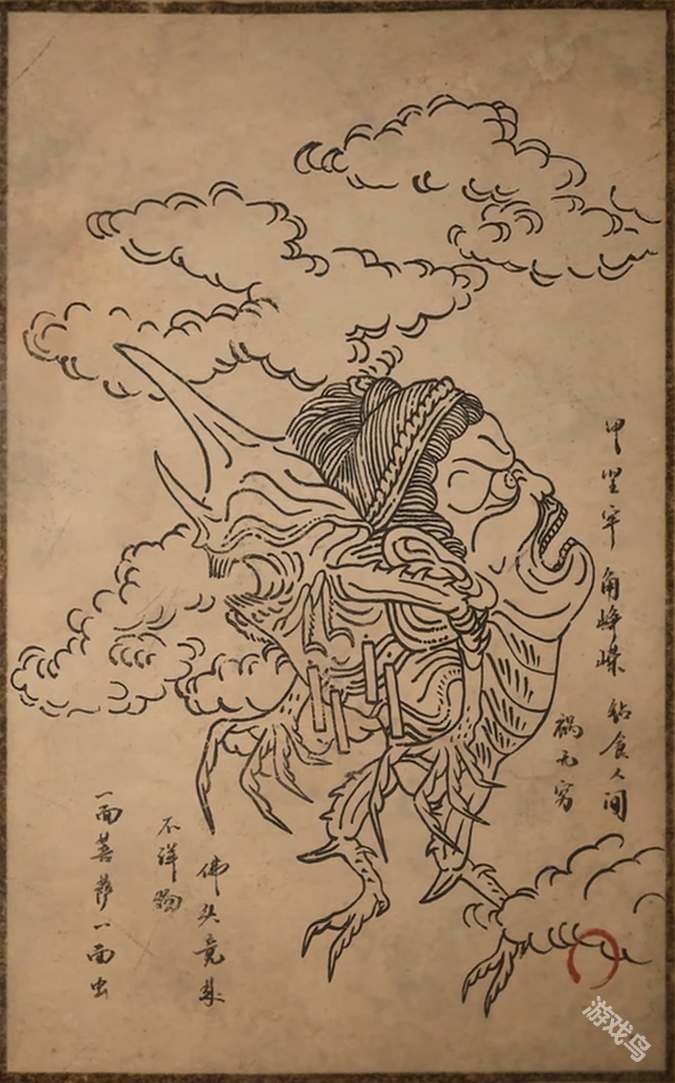 甲坚牢 角峥嵘 钻食人间
祸无穷
佛头竟
不祥物
一面菩萨一面虫
游戏鸟